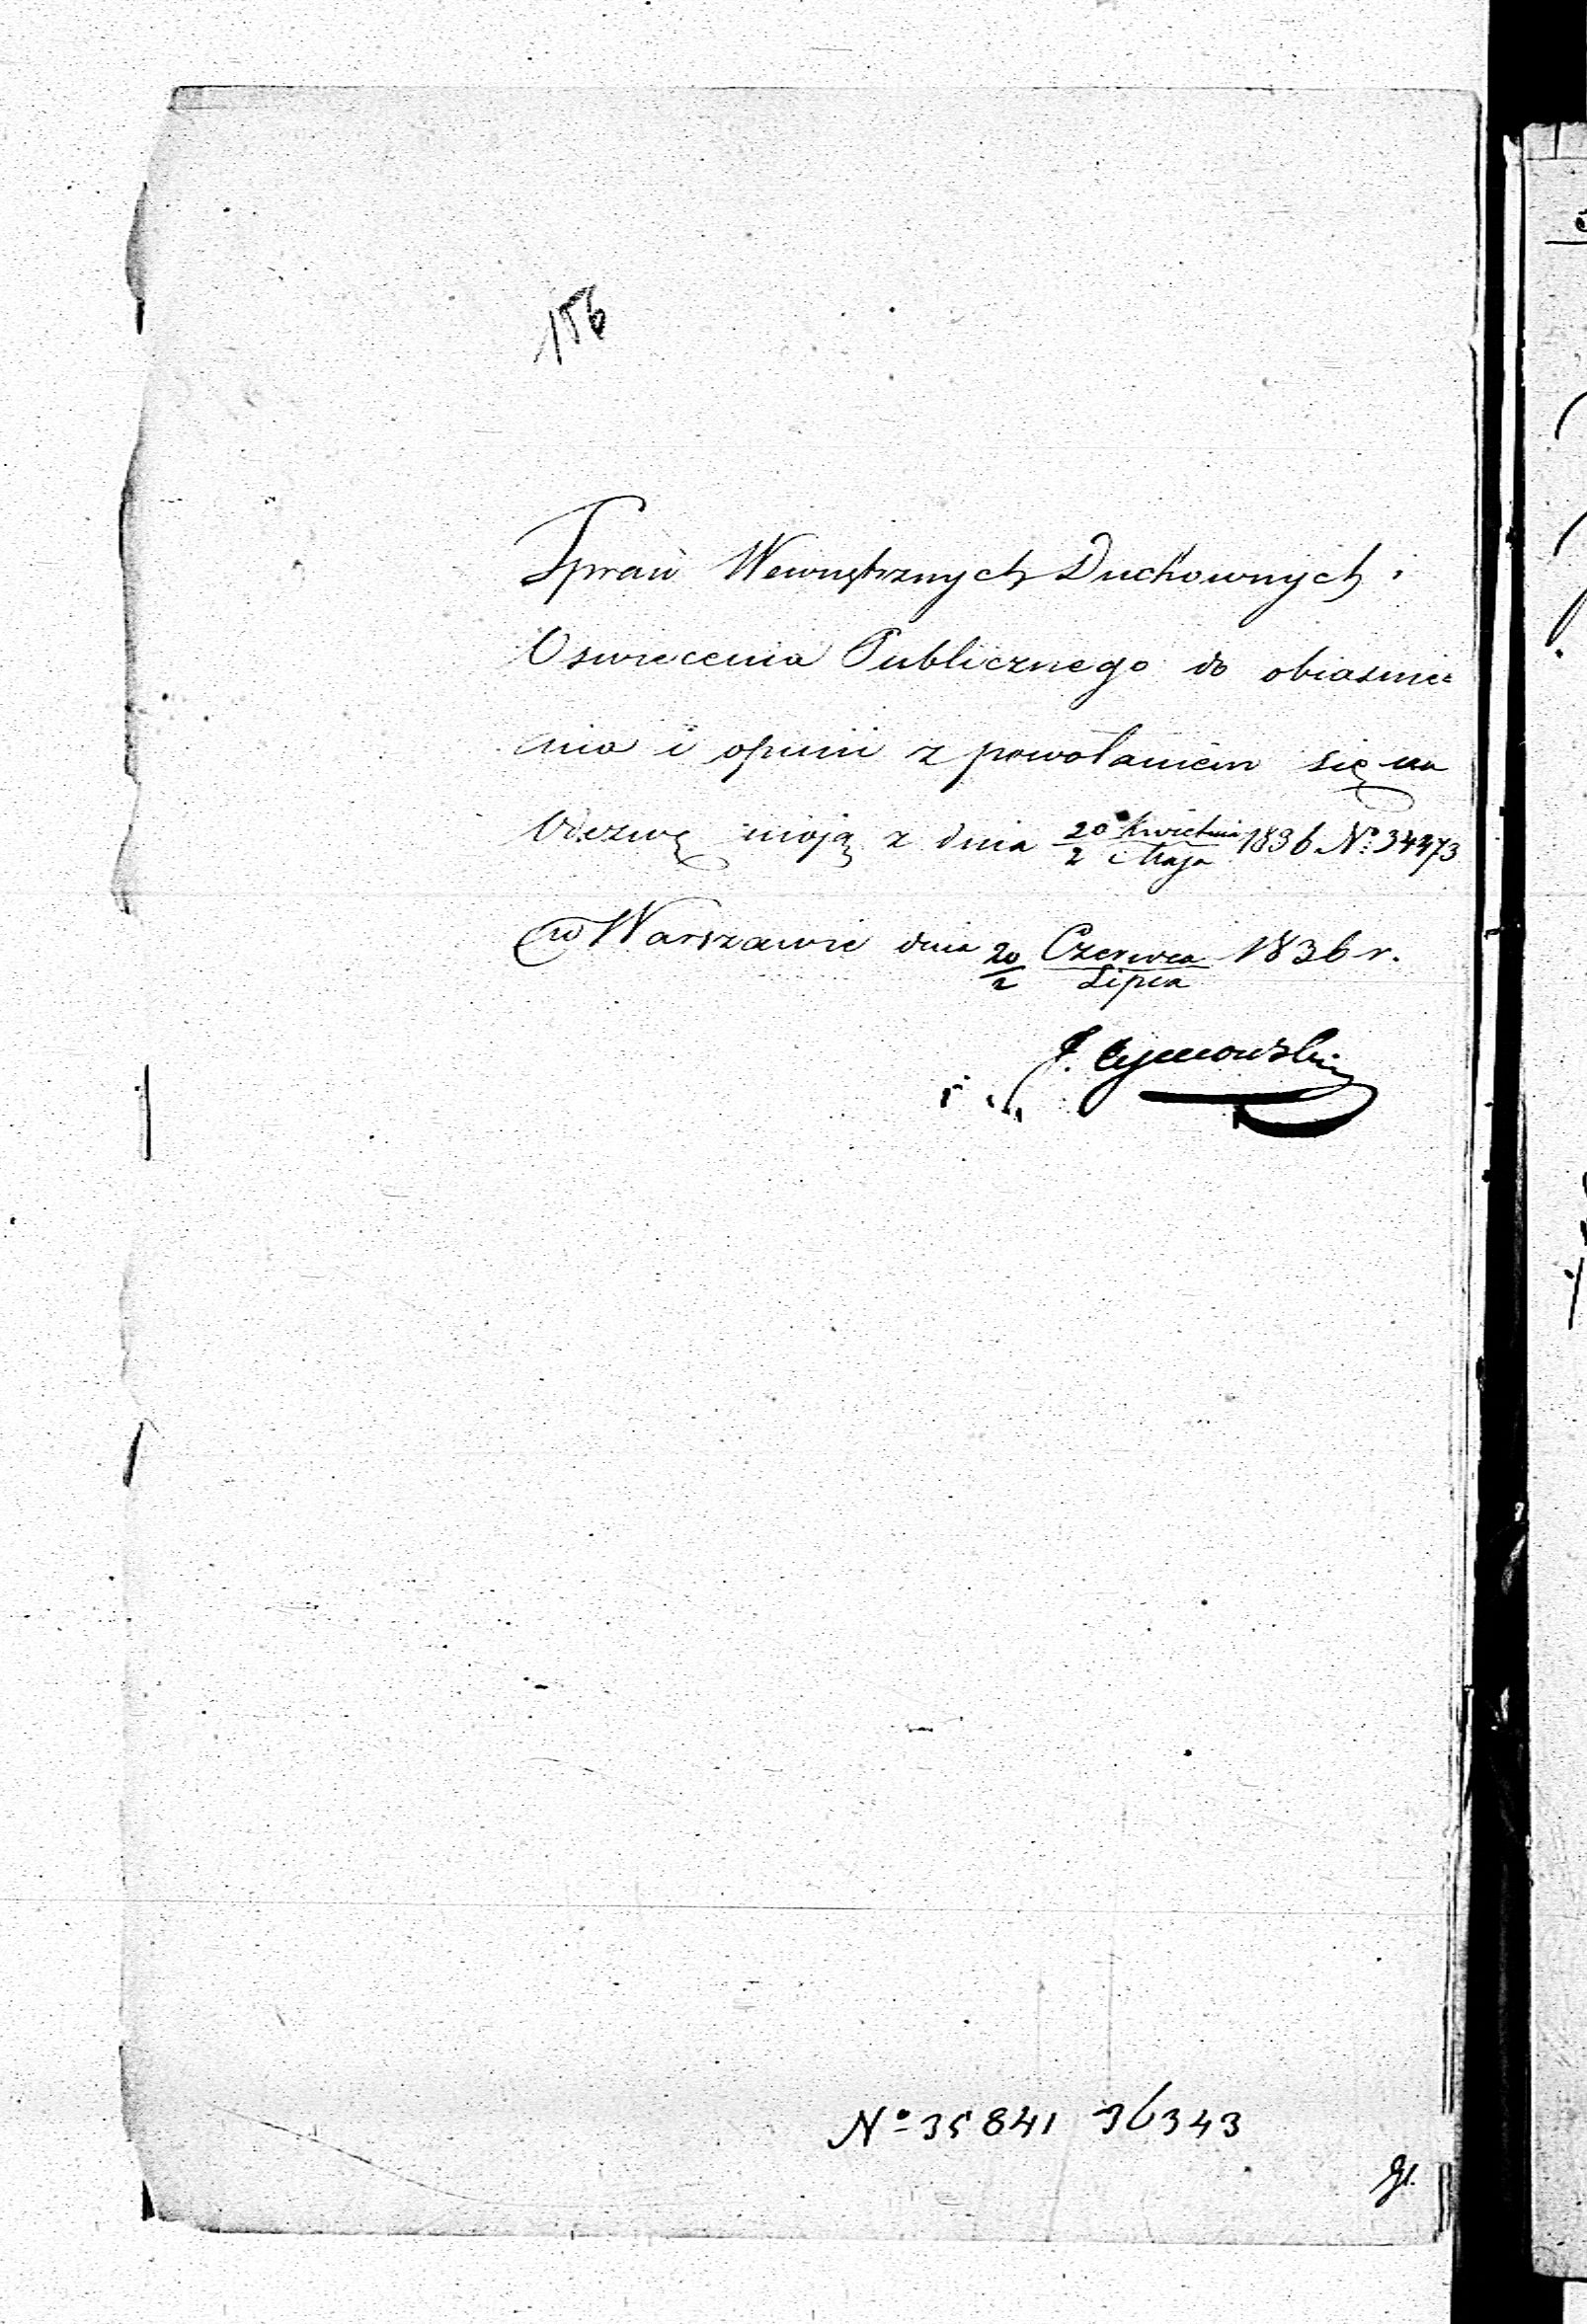 156
Spraw Wewnętrznych Duchownych i
Oswiecenia Publicznego do obiasnie=
nia i opinii z powołaniem się na
Odezwę moją z dnia 20/2 Kwietnia/Maja 1836 Nº 34473
w Warszawie dnia 20/2 Czerwca/Lipca 1836 r.
Nº 35841 36343